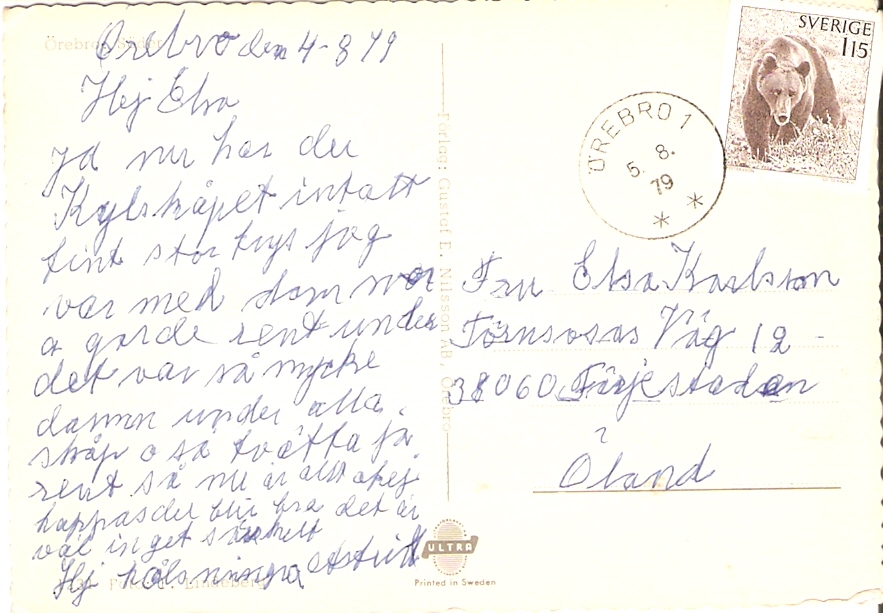 Örebro Söder
Örebro den 4-8 79
Hej Elsa
Ja nu har du
Kylskåpet intatt
fint stor frys jag
var med dom
o gorde rent under
det var så mycke
damm under alla
skåp o så tvätta ja
rent så nu är allt okej
hoppas det blir bra det är
väl inget särskelt
Hj hälsningar Astrid
Foto: Lindeberg
Förlag: Gustof E. Nilsson AB, Örebro
ULTRA
Printed in Sweden
SVERIGE
115
ÖREBRO 1
5. 8.
79
* *
Fru Elsa Karlsson
Törnsosas Väg 12
38060 Färjestaden
Öland